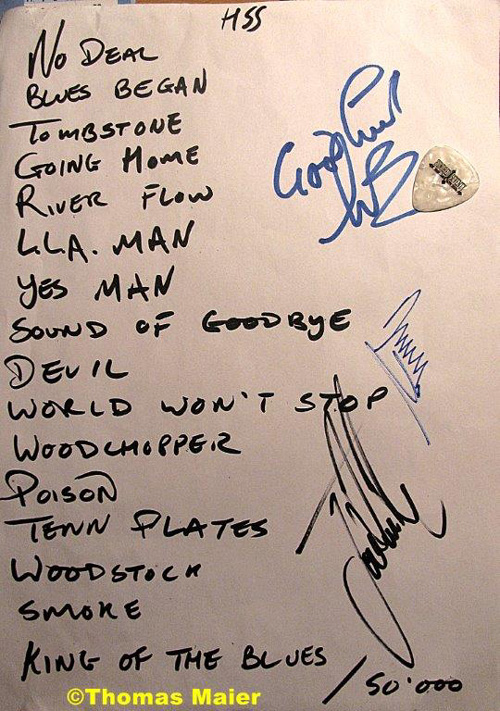 HSS
NO DEAL
BLUES BEGAN
TOMBSTONE
GOING HOME
RIVER FLOW
L.L.A. MAN
YES MAN
SOUND OF GOODBYE
DEVIL
WORLD WON'T STOP
WOODCHOPPER
POISON
TENN PLATES
WOODSTOCK
SMOKE
KING OF THE BLUES
/50'000
Good Luck
©Thomas Maier